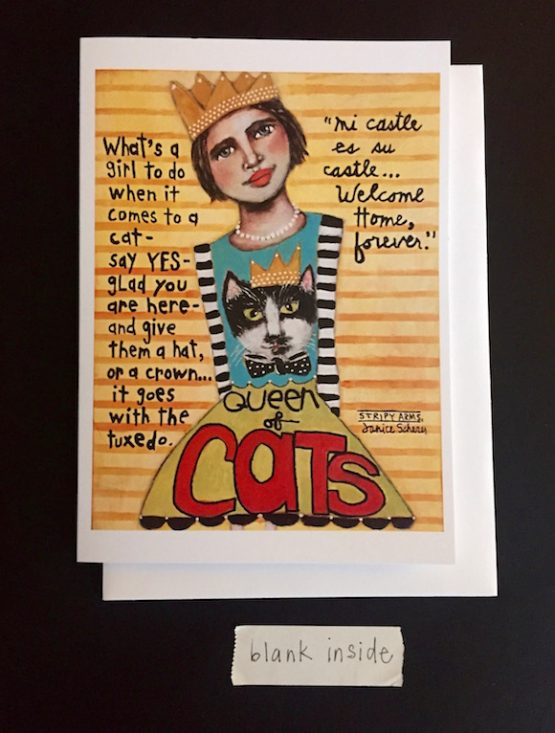 What's a
girl to do
when it
comes to a
cat-
say YES-
glad you
are here-
and give
them a hat,
or a crown...
it goes
with the
tuxedo.
"mi castle
es su
castle...
Welcome
Home,
forever."
QUEEN
of
CATS
STRIPY ARMS.
Janice
blank inside